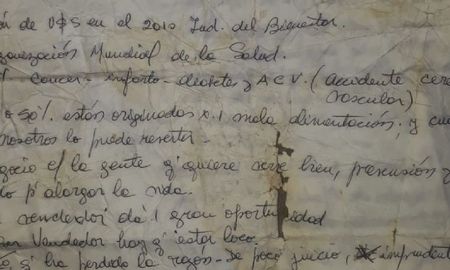 ón de U$S en el 2010 Ind. del Bienestar.
ganización Mundial de la Salud.
cancer - infarto - diabetes y A C V. (accidente cere
vascular)
o 50% están originados x 1 mala alimentación; y cu
nosotros lo puede revertir.
gocio es la gente q' quiere verse bien, prevención y
do p' alargar la vida.
vendedor dá 1 gran oportunidad
Vendedor hay q' estar loco.
q' ha perdido la razón - De poco juicio, imprudent